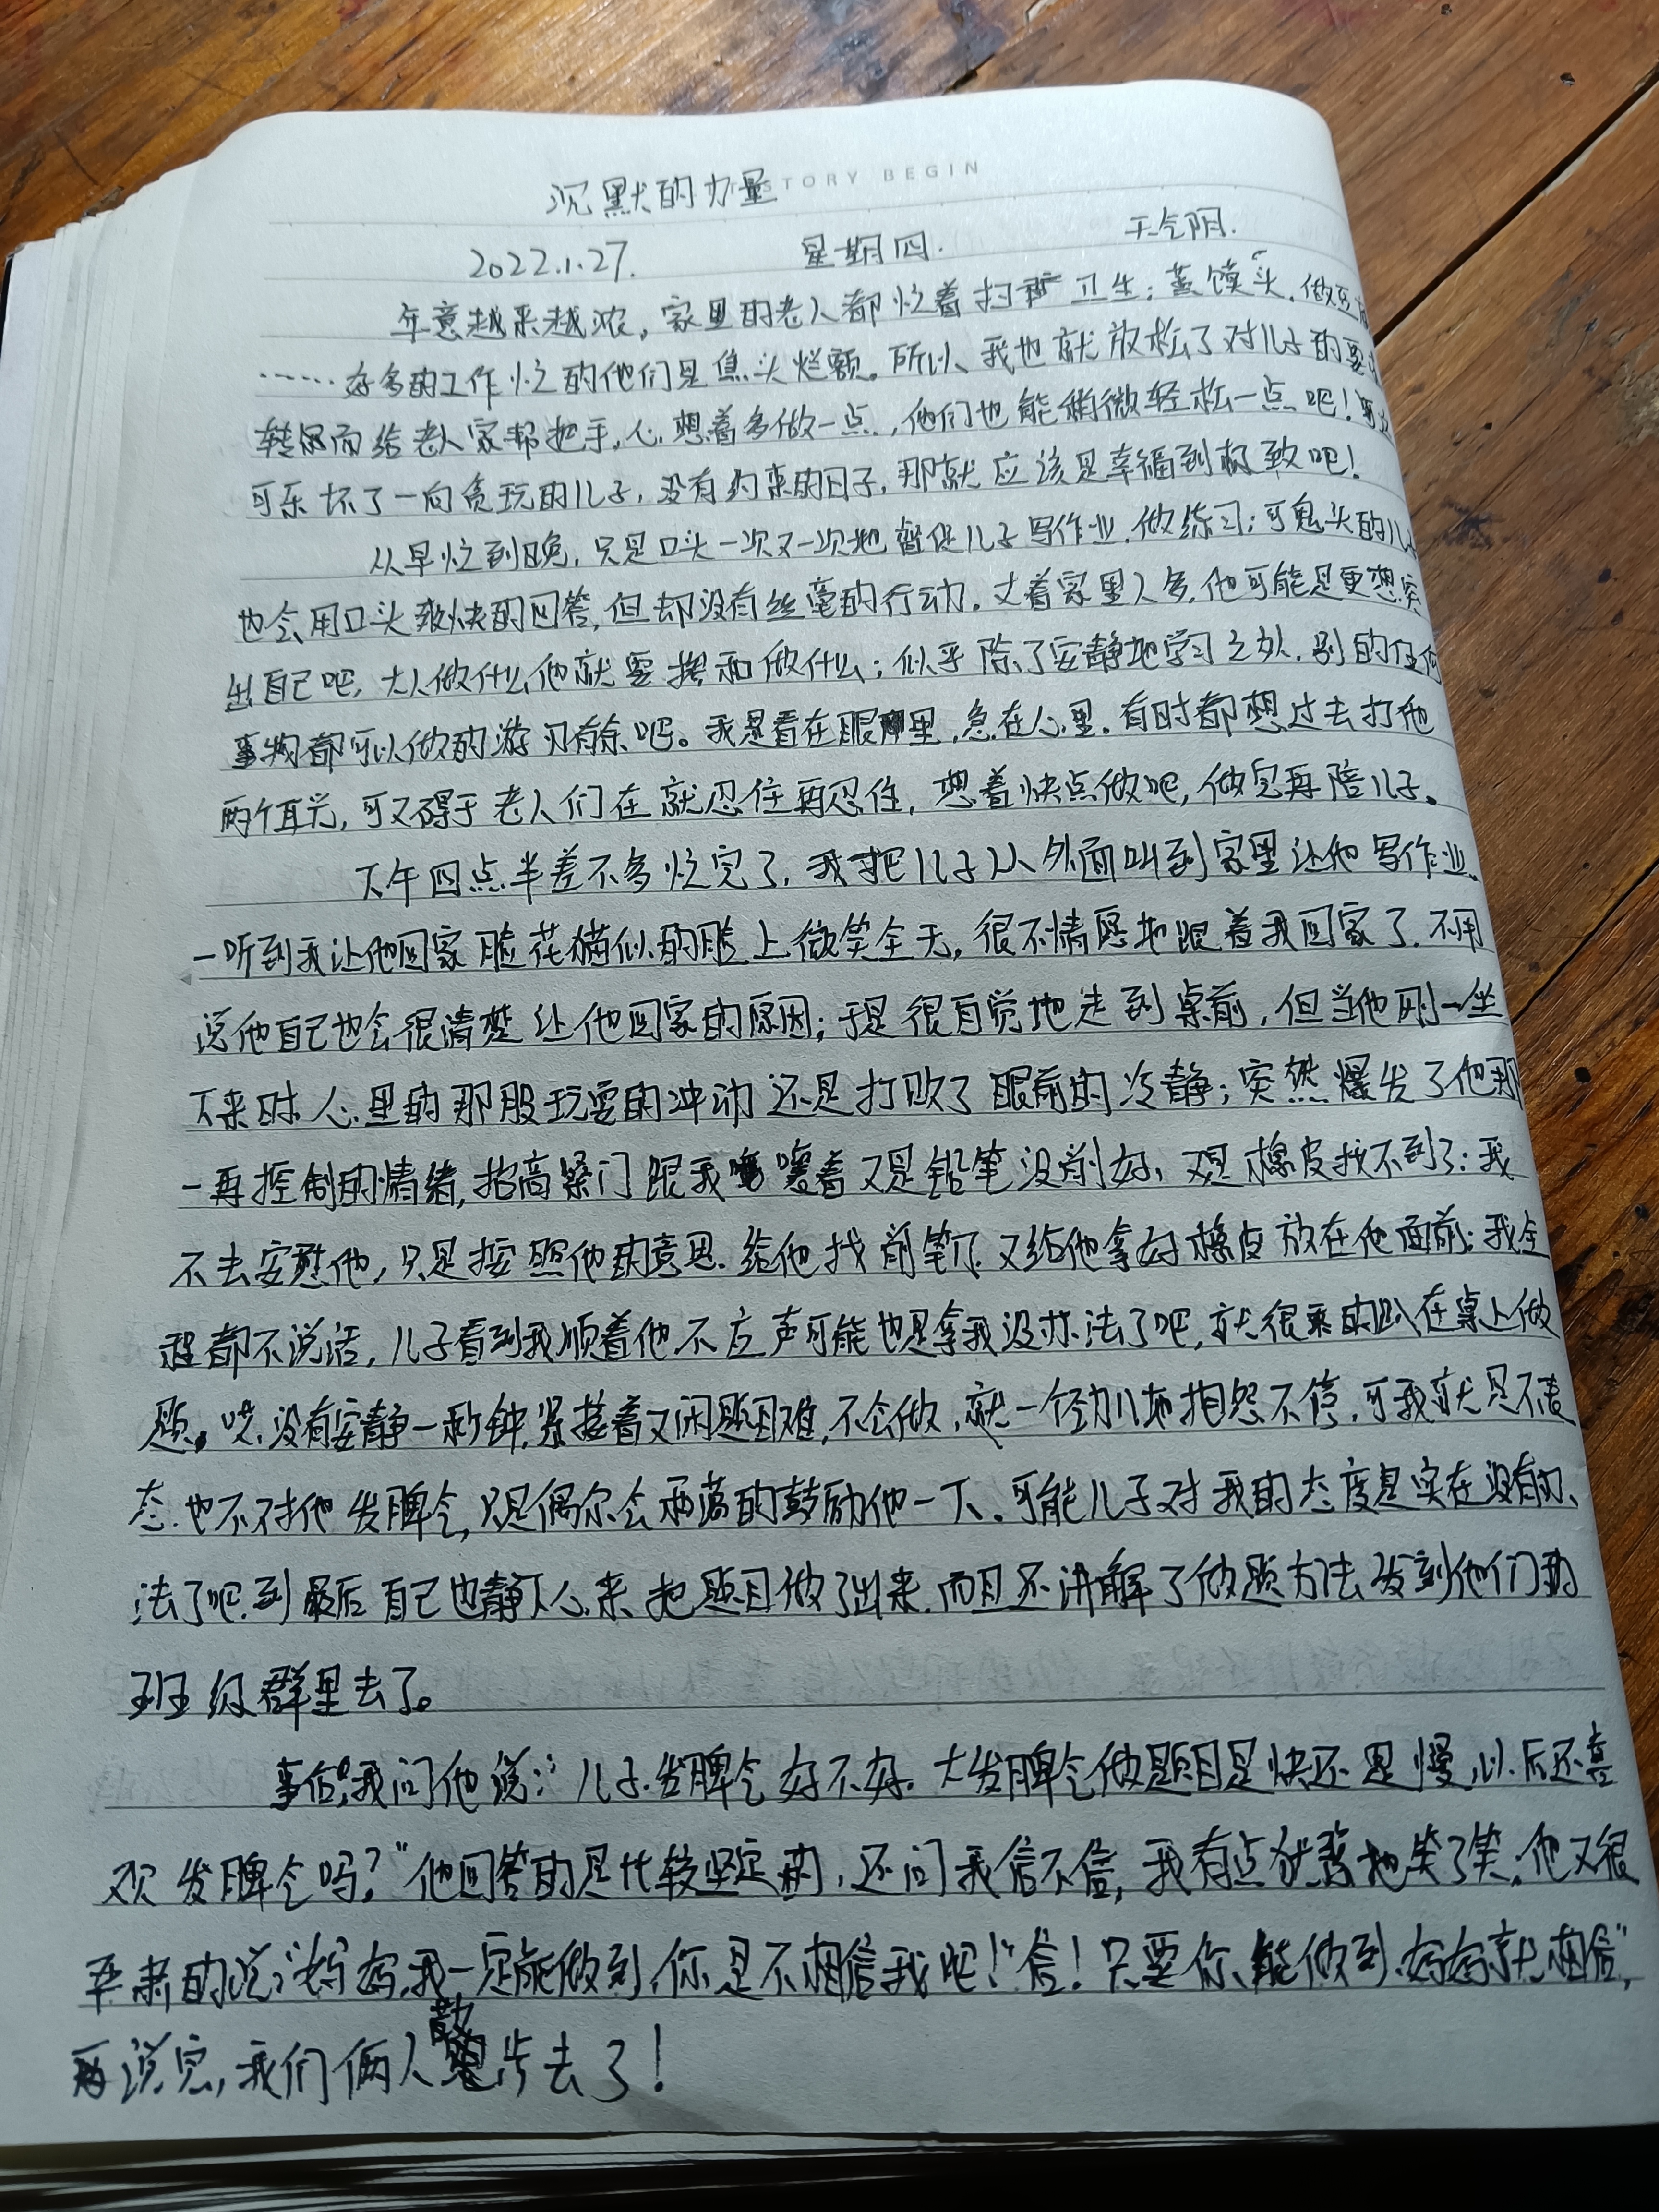 STORY BEGIN
沉默的力量
2022.1.27. 星期四. 天气阴.
年意越来越浓，家里的老人都忙着扫 卫生；蒸馍头，做豆腐
……好多的工作忙的他们是焦头烂额。所以，我也就放松了对儿子的要求
转 而给老人家帮把手，心想着多做一点，他们也能稍微轻松一点吧！
可乐坏了一向贪玩的儿子，没有约束的日子，那就应该是幸福到极致吧！
从早忙到晚，只是口头一次又一次地督促儿子写作业，做练习；可鬼头的儿子
也会用口头爽快的回答，但却没有丝毫的行动。丈着家里人多，他可能是更想突
出自己吧，大人做什么他就要搀和做什么；似乎除了安静地学习之外，别的任何
事物都可以做的游刃有余吧。我是看在眼里，急在心里。有时都想过去打他
两个耳光，可又碍于老人们在就忍住再忍住，想着快点做吧，做完再陪儿子。
下午四点半差不多忙完了，我把儿子从外面叫到家里让他写作业。
一听到我让他回家脸花猫似的脸上微笑全无，很不情愿地跟着我回家了，不用
说他自己也会很清楚让他回家的原因；于是很自觉地走到桌前，但当他刚一坐
下来时心里的那股玩耍的冲动还是打败了眼前的冷静；突然爆发了他那
一再控制的情绪，抬高嗓门跟我 嚷着又是铅笔没削好，又是橡皮找不到了；我
不去安慰他，只是按照他的意思，给他找削笔刀，又给他拿好橡皮放在他面前；我全
程都不说话，儿子看到我顺着他不应声可能也是拿我没办法了吧，就很乖的趴在桌上做
题。哎，没有安静一秒钟，紧接着又闲题目难，不会做，就一个劲儿地抱怨不停，可我就是不表
态，也不对他发脾气，只是偶尔会 的鼓励他一下。可能儿子对我的态度是实在没有办
法了吧，到最后自己也静下心来，把题目做了出来，而且还讲解了做题方法发到他们的
班级群里去了。
事后，我问他说：“儿子，发脾气好不好，大发脾气做题目是快还是慢，以后还喜
欢发脾气吗？”他回答的是比较坚定的，还问我信不信，我有点犹豫地笑了笑，他又很
严肃的说：“妈妈，我一定能做到，你是不相信我吧！”“信！只要你能做到，妈妈就相信”，
再说完，我们俩人散步去了！